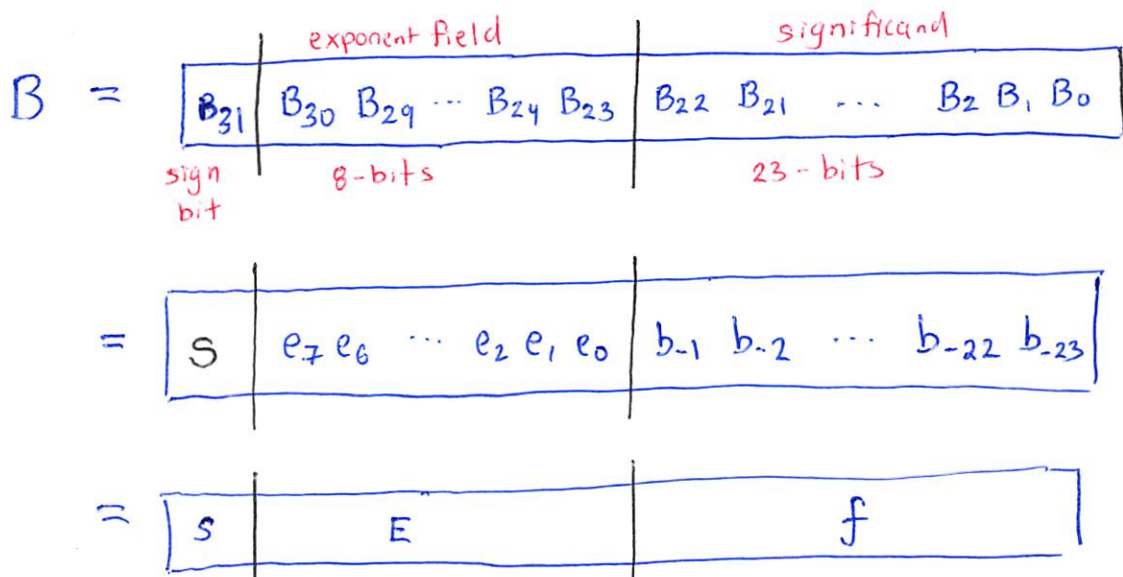 exponent field significand
B = B31 B30 B29 ... B24 B23 B22 B21 ... B2 B1 B0
sign bit 8-bits 23-bits
= S e7 e6 ... e2 e1 e0 b-1 b-2 ... b-22 b-23
= S E f